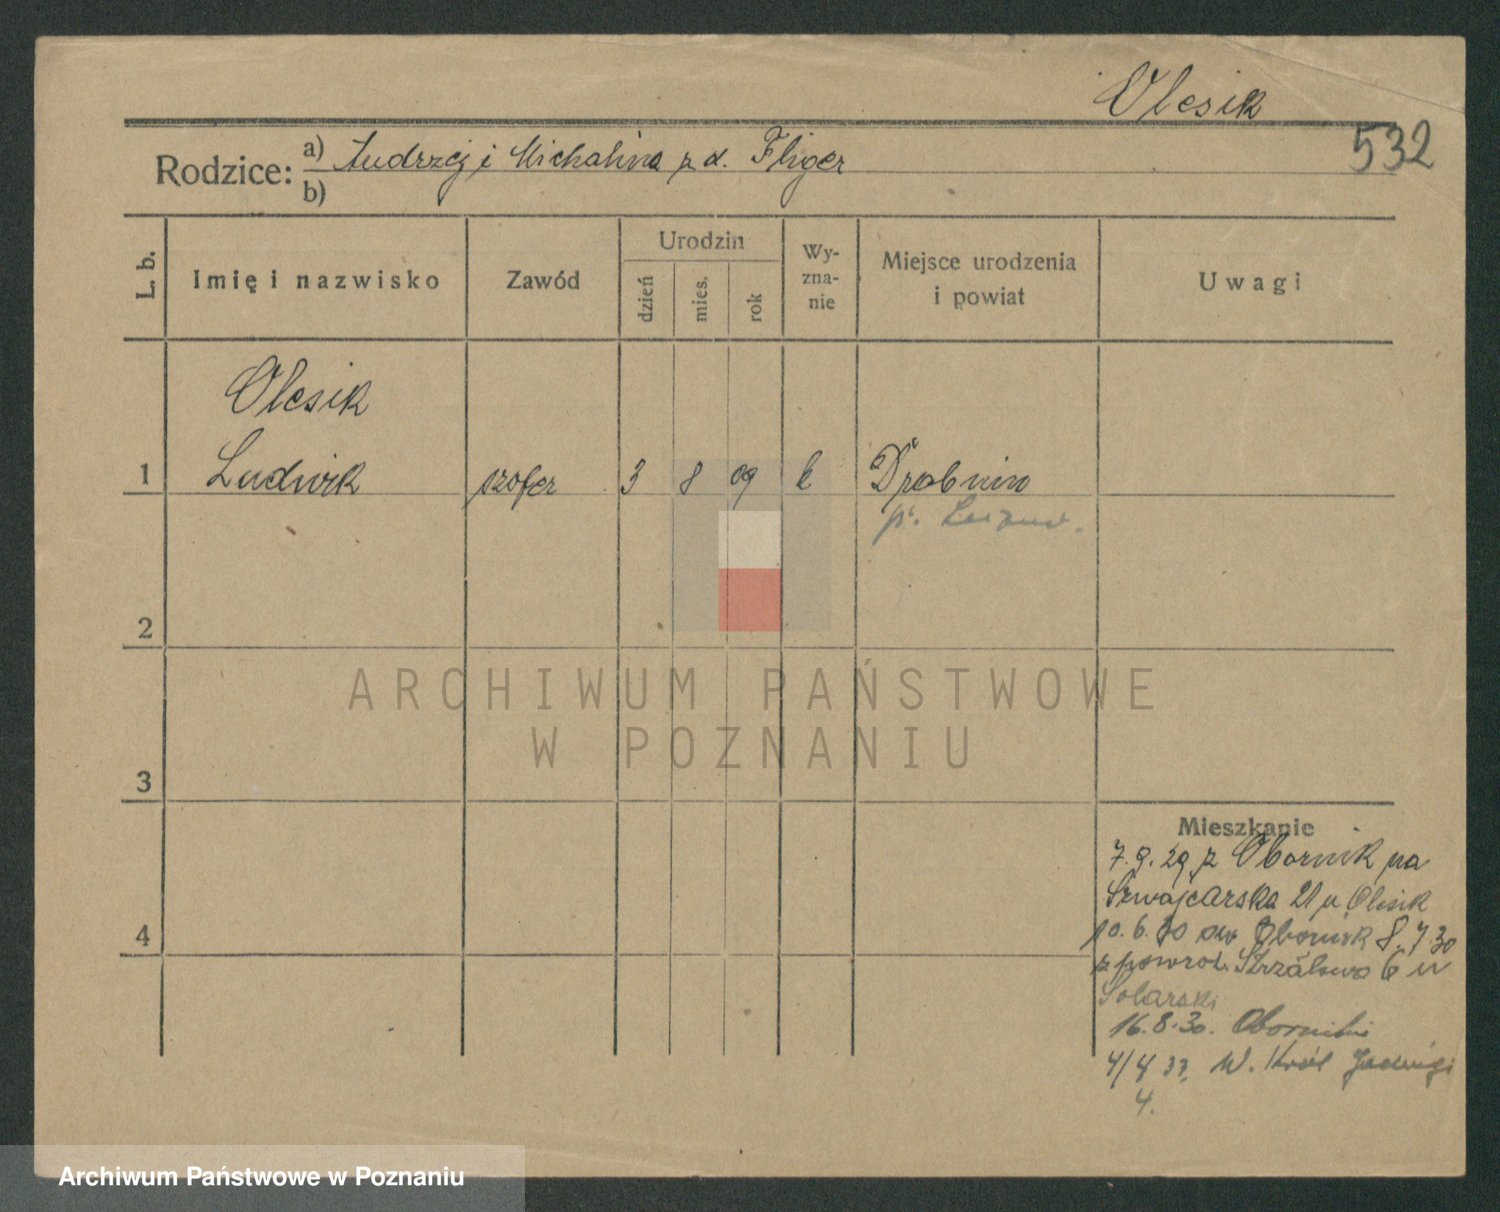 Olesik
532
Rodzice: a) Andrzej i Michalina z d. Fliger
b)
L. b.
Imię i nazwisko
Zawód
Urodzin
dzień
mies.
rok
Wy-
zna-
nie
Miejsce urodzenia
i powiat
Uwagi
Olesik
1 Ludwik szofer 3 8 09 k Drobnin
p.
2
ARCHIWUM PAŃSTWOWE
W POZNANIU
3
Mieszkanie
7.9.29 z Obornik na
Szwajcarska 21 u Olesik
10.6.30 Obornik 8.7.30
z powrot. Strzałowa 6 u
Solarski
16.8.30. Oborniki
4/4 33. W. Król Jadwigi
4.
4
Archiwum Państwowe w Poznaniu